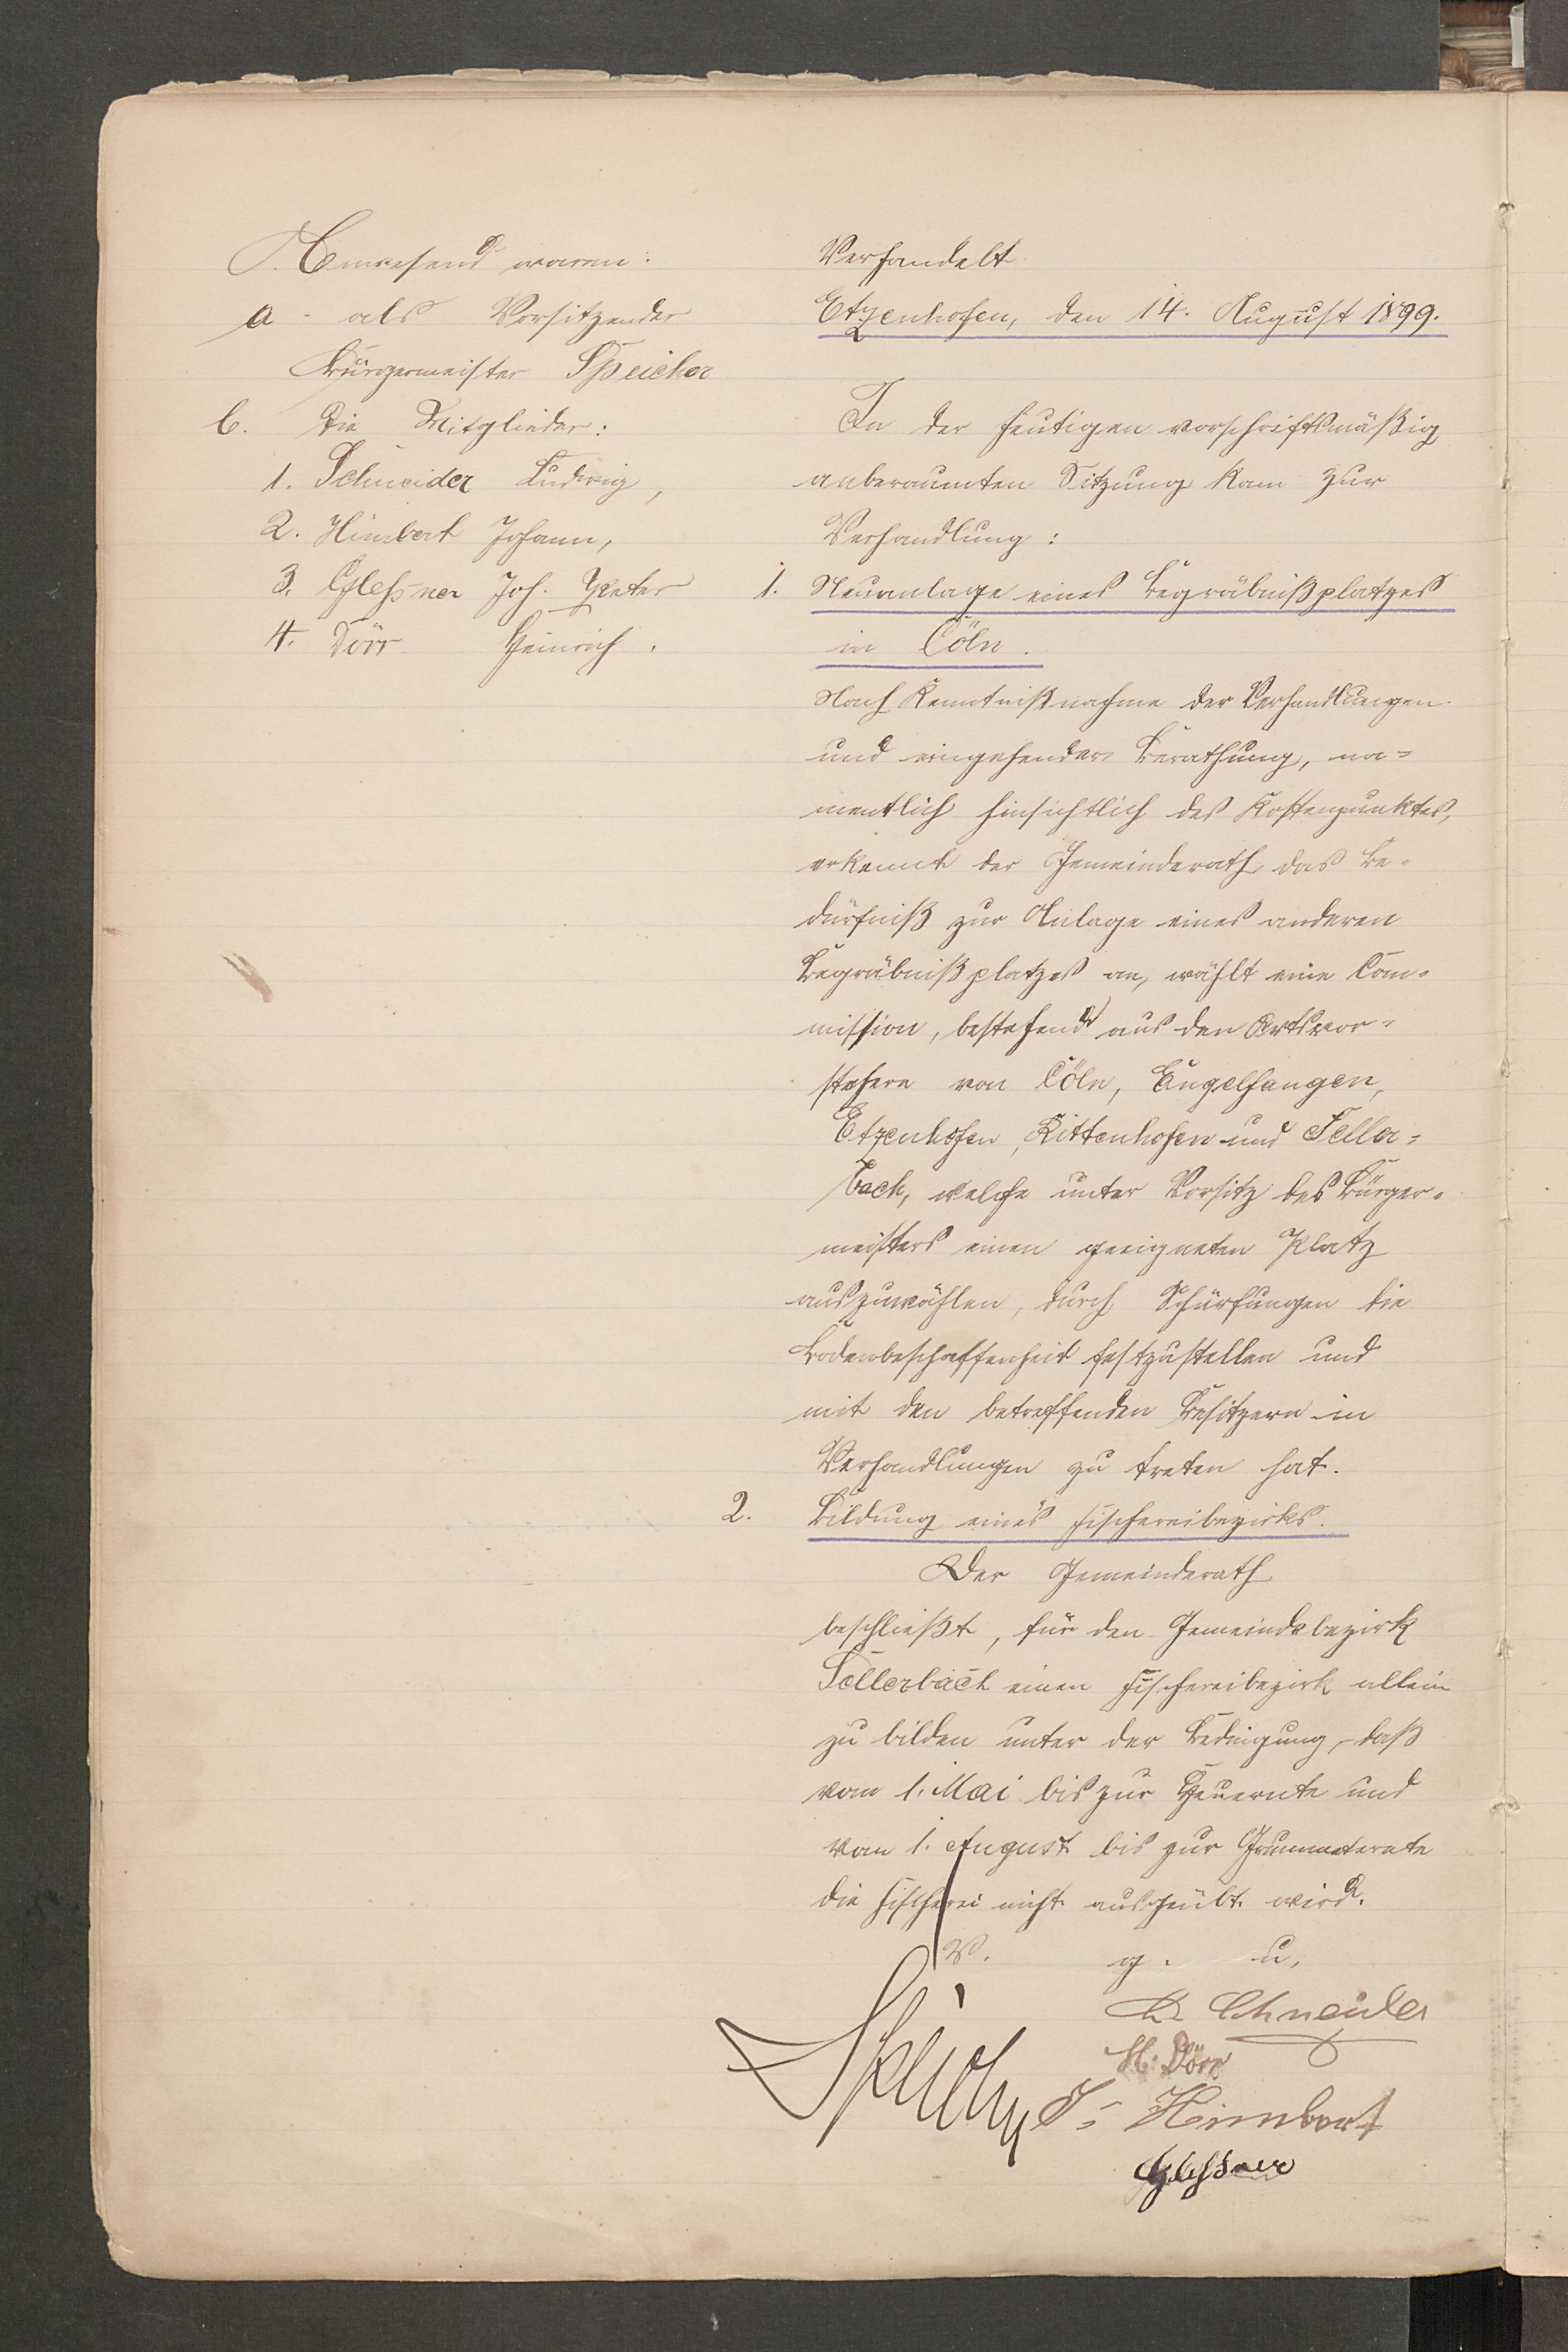 Anwesend waren:
a. als Vorsitzender
Bürgermeister Speicher
b. die Mitglieder:
1. Schneider Ludwig,
2. Himbert Johann,
3. Gleßner Joh. Peter
4. Dörr Heinrich.
Verhandelt
Etzenhofen, den 14. August 1899.
In der heutigen vorschriftsmäßig
anberaumten Sitzung kam zur
Verhandlung:
1. Neuanlage eines Begräbnißplatzes
in Cöln.
Nach Kenntnißnahme der Verhandlungen
und eingehender Berathung, na=
mentlich hinsichtlich des Kostenpunktes,
erkennt der Gemeinderath das Be=
dürfniß zur Anlage eines anderen
Begräbnißplatzes an, wählt eine Com=
mission, bestehend aus den Ortsvor=
stehern von Cöln, Engelfangen,
Etzenhofen, Rittenhofen und Seller=
bach, welche unter Vorsitz des Bürger=
meisters einen geeigneten Platz
auszuwählen, durch Schürfungen die
Bodenbeschaffenheit festzustellen und
mit den betreffenden Besitzern in
Verhandlungen zu treten hat.
2. Bildung eines Fischereibezirks.
Der Gemeinderath
beschließt, für den Gemeindebezirk
Sellerbach einen Fischereibezirk allein
zu bilden unter der Bedingung, daß
vom 1. Mai bis zur Heuernte und
vom 1. August bis zur Grummeternte
die Fischerei nicht ausgeübt wird.
V. g. u.
L. Schneider
H. Dörr
Speicher J. Himbert
Gleßner